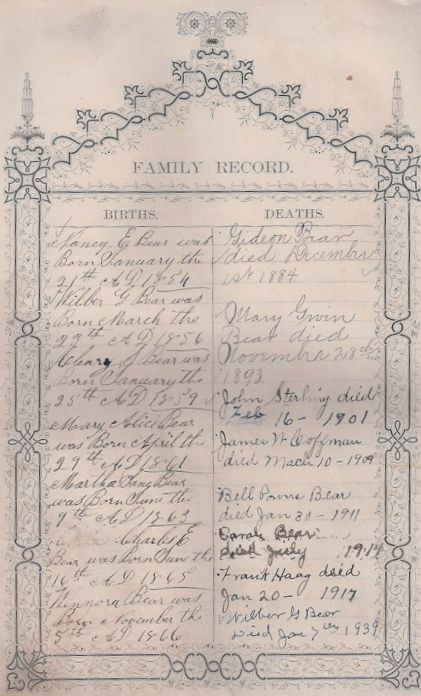 FAMILY RECORD.
BIRTHS.
Nancy E Bear was
Born January the
21th A.D. 1854
Wilber G Bear was
Born March the
22th A.D 1856
J Bear was
Born January the
25th A D 1859
Mary Alice Bear
was Born April the
29th A.D. 1861
Martha Jane Bear
was Born June the
9th A.D 1863
Charles E
Bear was Born June the
16th A D 1865
Bear was
Born November the
5th A.D 1866
DEATHS.
Gideon Bear
died December
1st 1884
Mary Gwin
Bear died
November 28th
1893
John Sterling died
Feb 16 - 1901
James W Coffman
died Mach 10 - 1909
Bell Bear
died Jan 30 - 1911
Bear
died July 1914
Frank Haag died
Jan 20 - 1917
Wilber G Bear
Died Jan 7th 1939